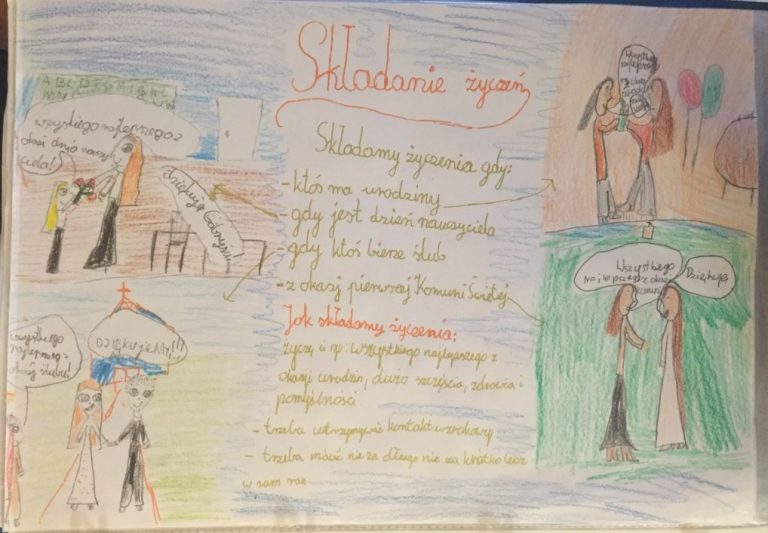 Składanie życzeń
Składamy życzenia gdy:
- ktoś ma urodziny
- gdy jest dzień nauczyciela
- gdy ktoś bierze ślub
- z okazji pierwszej Komuni Świętej
Jak składamy życzenia:
życzę ci np: wszystkiego najlepszego z
okazji urodzin, dużo szczęścia, zdrowia i
pomyślności
- trzeba utrzymywać kontakt wzrokowy
- trzeba mówić nie za długo nie za krótko lecz
w sam raz
wszystkiego najlepszego z
okazi dnia nauczy
ciela!
dziękuję Gabrysiu!
wszystkiego
najlepszego z
okazji ślubu!
DZIĘKUJEMY!!!
Wszystkiego
najlepszego
Wszystkiego
Najlepszego z okazji
Dziękuję